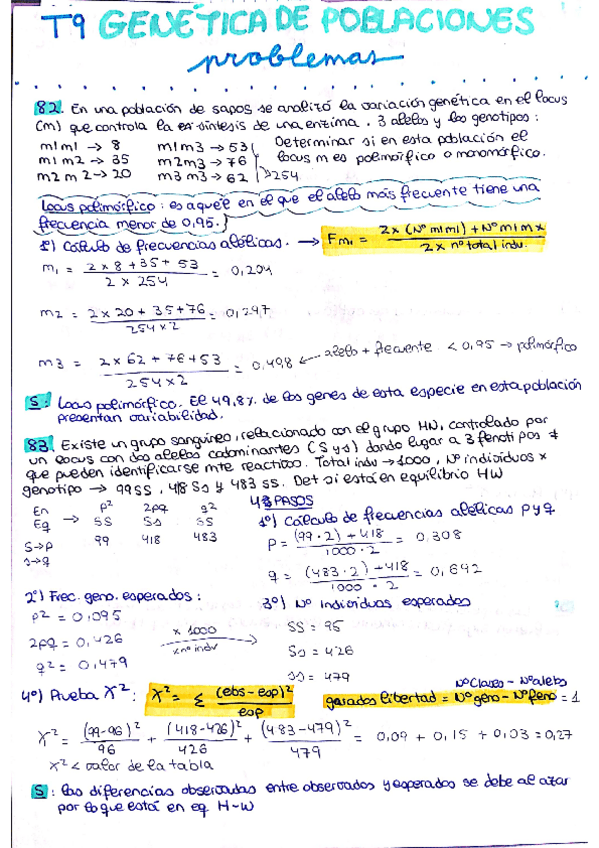 T9 GENÉTICA DE POBLACIONES
problemas
82. En una población de sapos se analizó la variación genética en el locus
(m) que controla la síntesis de una enzima. 3 alelos y los genotipos:
m1m1 → 8 m1m3 → 53 Determinar si en esta población el
m1m2 → 35 m2m3 → 76 locus m es polimórfico o monomórfico.
m2m2 → 20 m3m3 → 62 → 254
Locus polimórfico: es aquel en el que el alelo más frecuente tiene una
frecuencia menor de 0,95.
1º) Cálculo de frecuencias alélicas. → Fm1 = 2x(Nº m1m1) + Nº m1mx / 2x nº total indv.
m1 = 2x8+35+53 / 2x254 = 0,204
m2 = 2x20+35+76 / 254x2 = 0,297
m3 = 2x62+76+53 / 254x2 = 0,498 ← alelo + frecuente < 0,95 → polimórfico
S: Locus polimórfico. El 49,8% de los genes de esta especie en esta población
presentan variabilidad.
83. Existe un grupo sanguíneo, relacionado con el grupo MN, controlado por
un locus con dos alelos codominantes (S y s) dando lugar a 3 fenotipos ≠
que pueden identificarse mte reactivo. Total indv → 1000, Nº individuos x
genotipo → 99 SS, 418 Ss y 483 ss. Det si está en equilibrio HW
En Eq → p² 2pq q²
SS Ss ss
S→p 99 418 483
s→q
4 PASOS
1º) Cálculo de frecuencias alélicas p y q
p = (99·2)+418 / 1000·2 = 0,308
q = (483·2)+418 / 1000·2 = 0,692
2º) Frec. geno. esperados:
p² = 0,095
2pq = 0,426
q² = 0,479
x 1000
x nº indv
3º) Nº Individuos esperados
SS = 95
Ss = 426
ss = 479
4º) Prueba X²: X² = Σ (obs-esp)² / esp
Nº Clases - Nº alelos
grados libertad = Nº geno - Nº feno = 1
X² = (99-96)² / 96 + (418-426)² / 426 + (483-479)² / 479 = 0,09 + 0,15 + 0,03 = 0,27
X² < valor de la tabla
S: las diferencias observadas entre observados y esperados se debe al azar
por lo que está en eq H-W